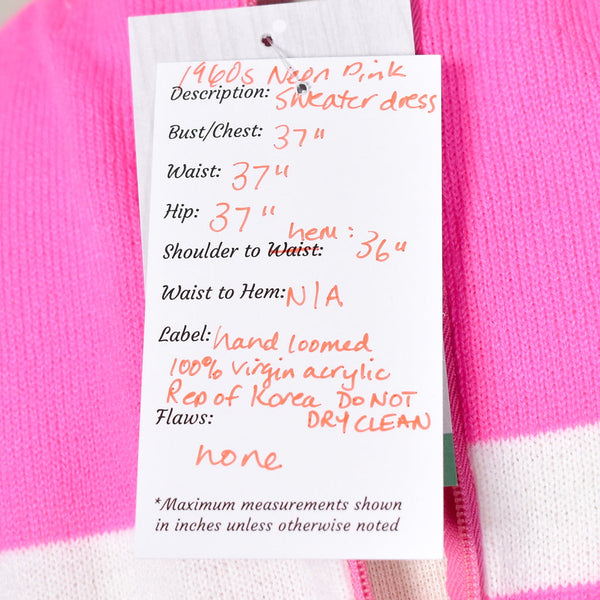 1960s Neon Pink
Description: Sweater dress
Bust/Chest: 37"
Waist: 37"
Hip: 37"
hem:
Shoulder to Waist: 36"
Waist to Hem: N/A
Label: hand loomed
100% virgin acrylic
Rep of Korea DO NOT
Flaws: DRY CLEAN
none
*Maximum measurements shown
in inches unless otherwise noted